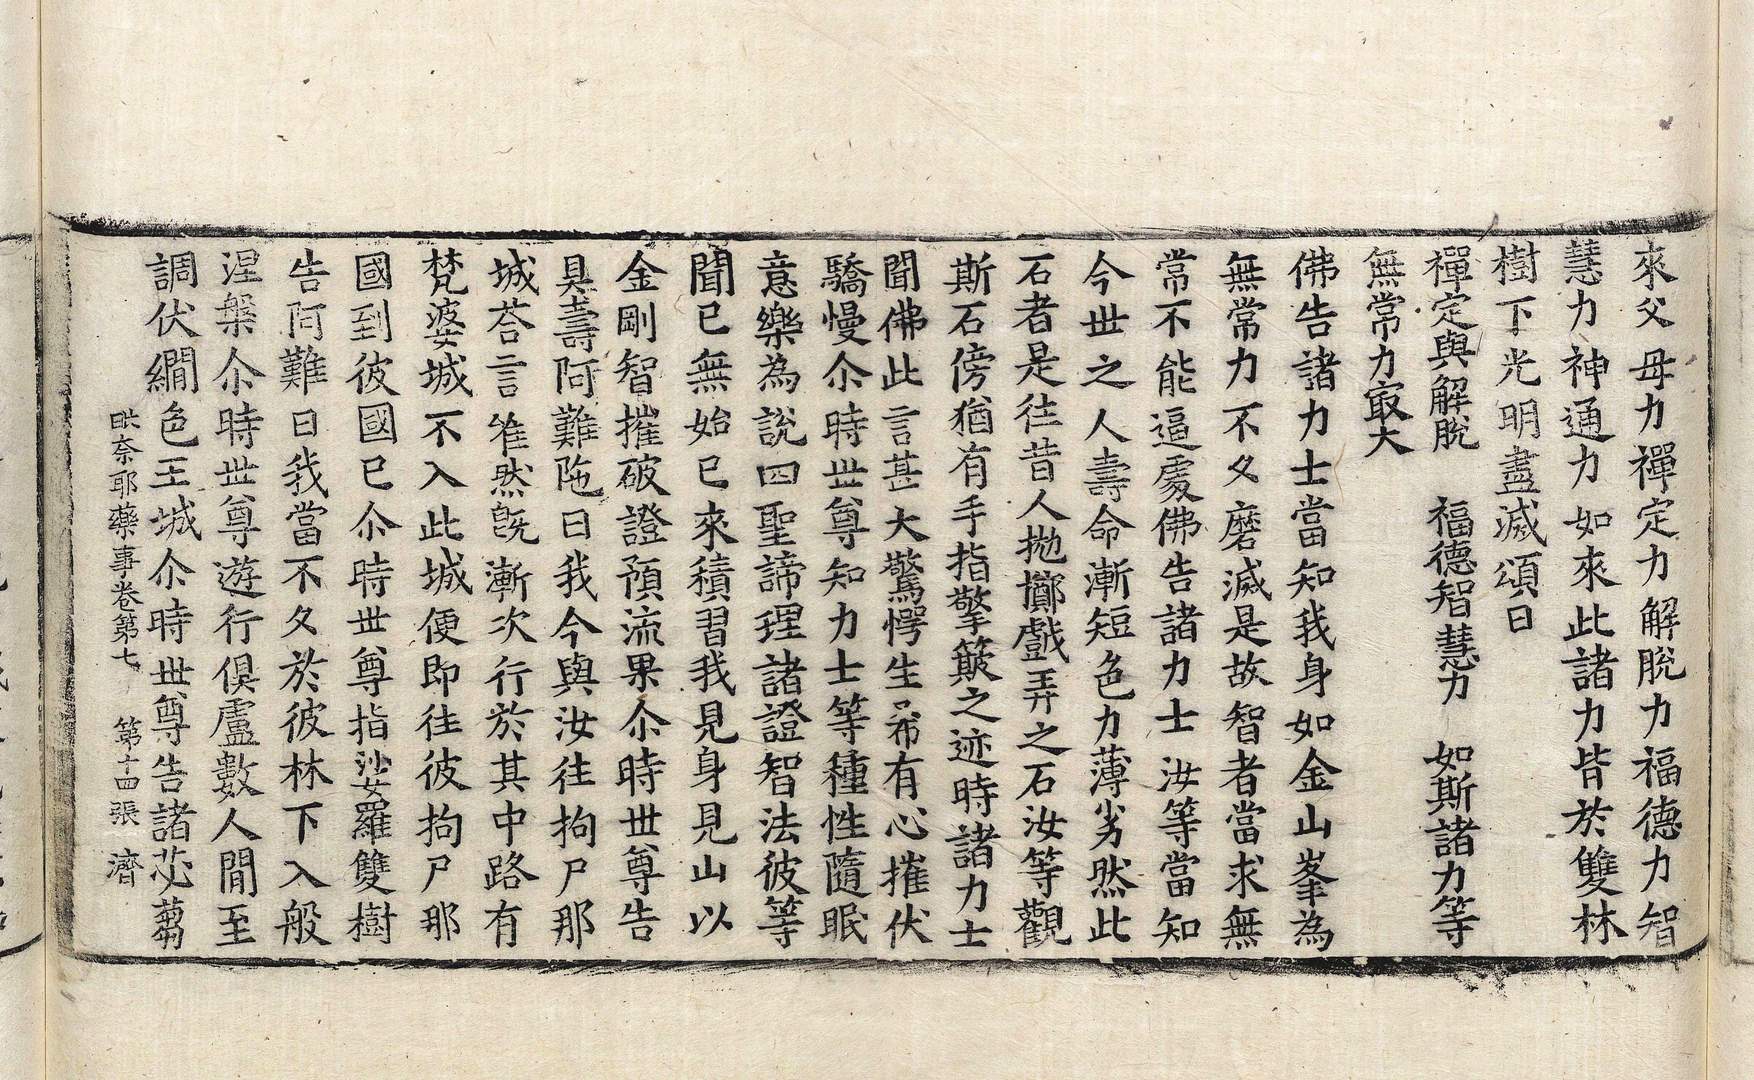 來父母力禪定力解脫力福德力智
慧力神通力如來此諸力皆於雙林
樹下光明盡滅頌曰
禪定與解脫　福德智慧力　如斯諸力等
無常力㝡大
佛告諸力士當知我身如金山峯為
無常力不久磨滅是故智者當求無
常不能逼處佛告諸力士汝等當知
今世之人壽命漸短色力薄劣然此
石者是往昔人拋擲戲弄之石汝等觀
斯石傍猶有手指擎簸之迹時諸力士
聞佛此言甚大驚愕生希有心摧伏
驕慢尒時世尊知力士等種性隨眠
意樂為說四聖諦理諸證智法彼等
聞已無始已來積習我見身見山以
金剛智摧破證預流果尒時世尊告
具壽阿難陁曰我今與汝往拘尸那
城荅言唯然旣漸次行於其中路有
梵婆城不入此城便即往彼拘尸那
國到彼國已尒時世尊指娑羅雙樹
告阿難曰我當不久於彼林下入般
涅槃尒時世尊遊行俱盧數人間至
調伏繝色王城尒時世尊告諸苾蒭
毗奈耶藥事卷第七　第十四張　濟